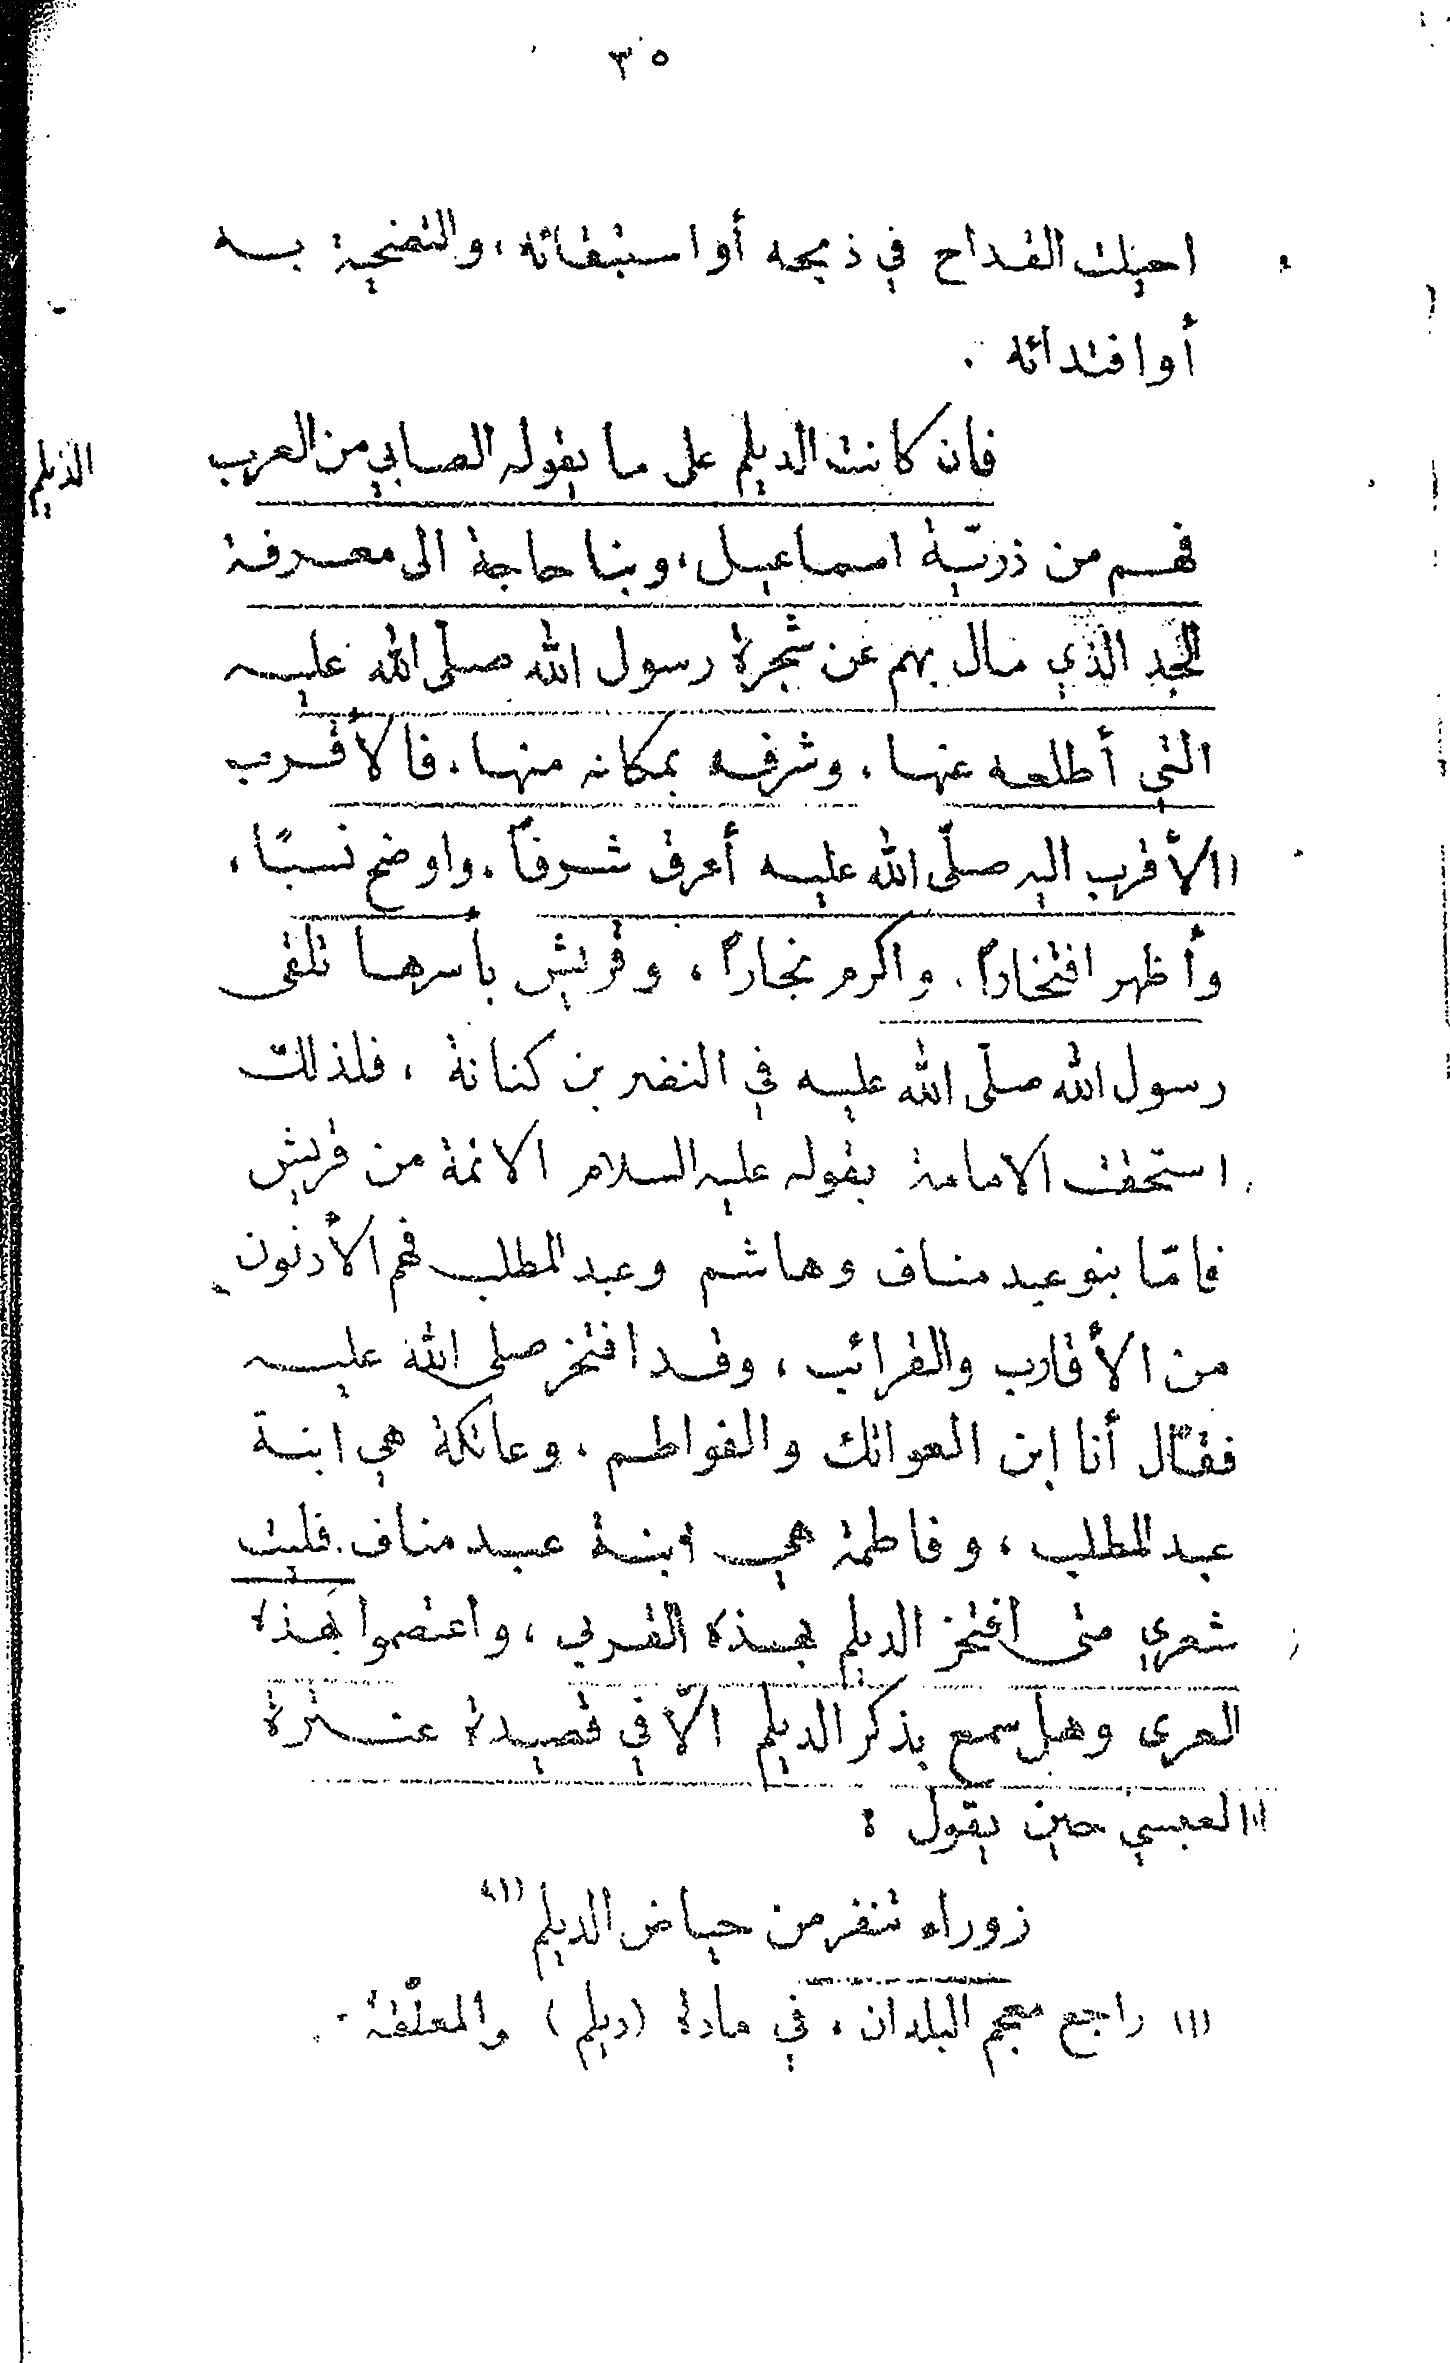 ٣٥
احيلت القداح في ذبحه أو استبقائه، والتضحية به
أو افتدائه .
فان كانت الديلم على ما يقوله الصابي من العرب
الديلم
فهم من ذريّة اسماعيل، وبنا حاجة الى معرفة
الجد الذي مال بهم عن شجرة رسول الله صلّى الله عليه
التي أطلعه عنها، وشرفه بمكانه منها، فالأقرب
الأقرب اليه صلّى الله عليه أعرق شرفاً، واوضح نسبًا،
وأظهر افتخاراً، واكرم نجاراً، وقريش بأسرها تلقى
رسول الله صلّى الله عليه في النضر بن كنانة، فلذلك
استحقت الامامة بقوله عليه السلام الائمة من قريش
فامّا بنو عبد مناف وهاشم وعبد المطلب فهم الأدنون
من الأقارب والقرائب، وقد افتخر صلى الله عليه
فقال أنا ابن العواتك والفواطم، وعاتكة هي ابنة
عبد المطلب، وفاطمة هي ابنة عبد مناف. فليت
شعري متى افتخر الديلم بهذه القربى، واعتصموا بهذه
العرى وهل سمع بذكر الديلم الّا في قصيدة عنترة
العبسي حين يقول :
زوراء تنفر من حياض الديلم (١)
(١) راجع معجم البلدان، في مادة (ديلم) والمعلّقة .